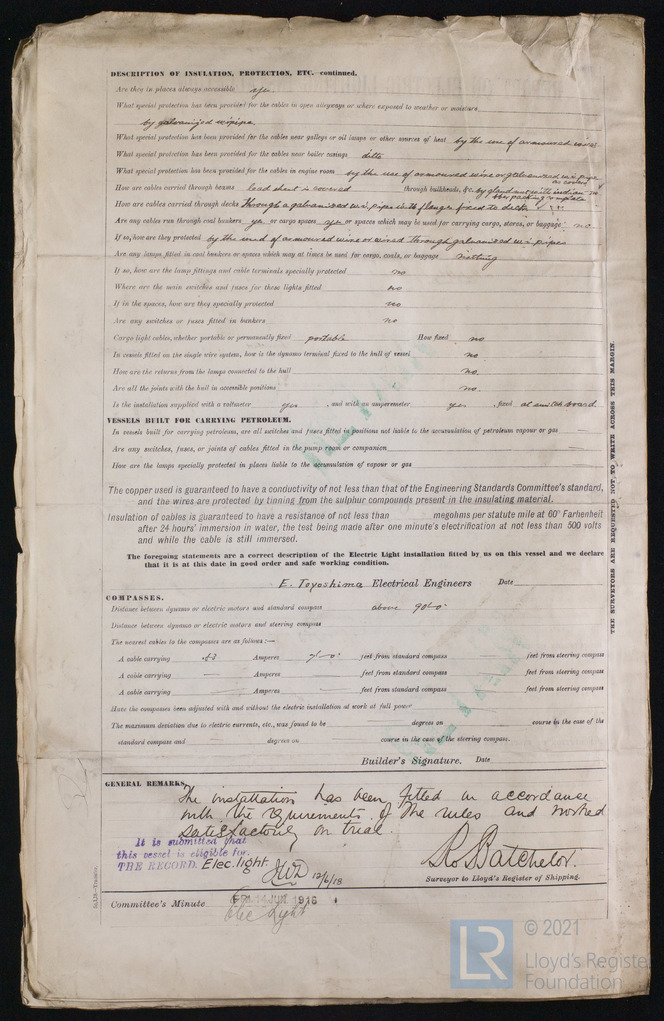 DESCRIPTION OF INSULATION, PROTECTION, ETC.—continued.
Are they in places always accessible yes
What special protection has been provided for the cables in open alleyways or where exposed to weather or moisture
by galvanized w.i. pipe
What special protection has been provided for the cables near galleys or oil lamps or other sources of heat by the use of armoured wires
What special protection has been provided for the cables near boiler casings ditto
What special protection has been provided for the cables in engine room by the use of armoured wire or galvanized w.i. pipe
How are cables carried through beams lead sheet is covered through bulkheads, &c. by gland nut with indian
How are cables carried through decks Through a galvanized w.i. pipe with flange fixed to deck
Are any cables run through coal bunkers yes or cargo spaces yes or spaces which may be used for carrying cargo, stores, or baggage no
If so, how are they protected by the used of armoured wire or wired through galvanized w.i. pipes
Are any lamps fitted in coal bunkers or spaces which may at times be used for cargo, coals, or baggage nothing
If so, how are the lamp fittings and cable terminals specially protected no
Where are the main switches and fuses for these lights fitted no
If in the spaces, how are they specially protected no
Are any switches or fuses fitted in bunkers no
Cargo light cables, whether portable or permanently fixed portable How fixed no
In vessels fitted on the single wire system, how is the dynamo terminal fixed to the hull of vessel no
How are the returns from the lamps connected to the hull no.
Are all the joints with the hull in accessible positions no.
Is the installation supplied with a voltmeter yes , and with an amperemeter yes , fixed at switch board
VESSELS BUILT FOR CARRYING PETROLEUM.
In vessels built for carrying petroleum, are all switches and fuses fitted in positions not liable to the accumulation of petroleum vapour or gas
Are any switches, fuses, or joints of cables fitted in the pump room or companion
How are the lamps specially protected in places liable to the accumulation of vapour or gas
The copper used is guaranteed to have a conductivity of not less than that of the Engineering Standards Committee's standard,
and the wires are protected by tinning from the sulphur compounds present in the insulating material.
Insulation of cables is guaranteed to have a resistance of not less than megohms per statute mile at 60° Farhenheit
after 24 hours' immersion in water, the test being made after one minute's electrification at not less than 500 volts
and while the cable is still immersed.
The foregoing statements are a correct description of the Electric Light installation fitted by us on this vessel and we declare
that it is at this date in good order and safe working condition.
E. Toyoshima Electrical Engineers Date
COMPASSES.
Distance between dynamo or electric motors and standard compass above 90'-0"
Distance between dynamo or electric motors and steering compass
The nearest cables to the compasses are as follows:—
A cable carrying Amperes feet from standard compass feet from steering compass
A cable carrying Amperes feet from standard compass feet from steering compass
A cable carrying Amperes feet from standard compass feet from steering compass
Have the compasses been adjusted with and without the electric installation at work at full power
The maximum deviation due to electric currents, etc., was found to be degrees on course in the case of the
standard compass and degrees on course in the case of the steering compass.
Builder's Signature. Date
GENERAL REMARKS.
The installation has been fitted in accordance
with the requirements of the rules and worked
satisfactorily on trial.
It is submitted that
this vessel is eligible for
THE RECORD. Elec. light.
12/6/18
Ro Batchelor.
Surveyor to Lloyd's Register of Shipping.
Committee's Minute FRI. 14 JUN 1918
Elec Light
THE SURVEYORS ARE REQUESTED NOT TO WRITE ACROSS THIS MARGIN.
LR
© 2021
Lloyd's Register
Foundation